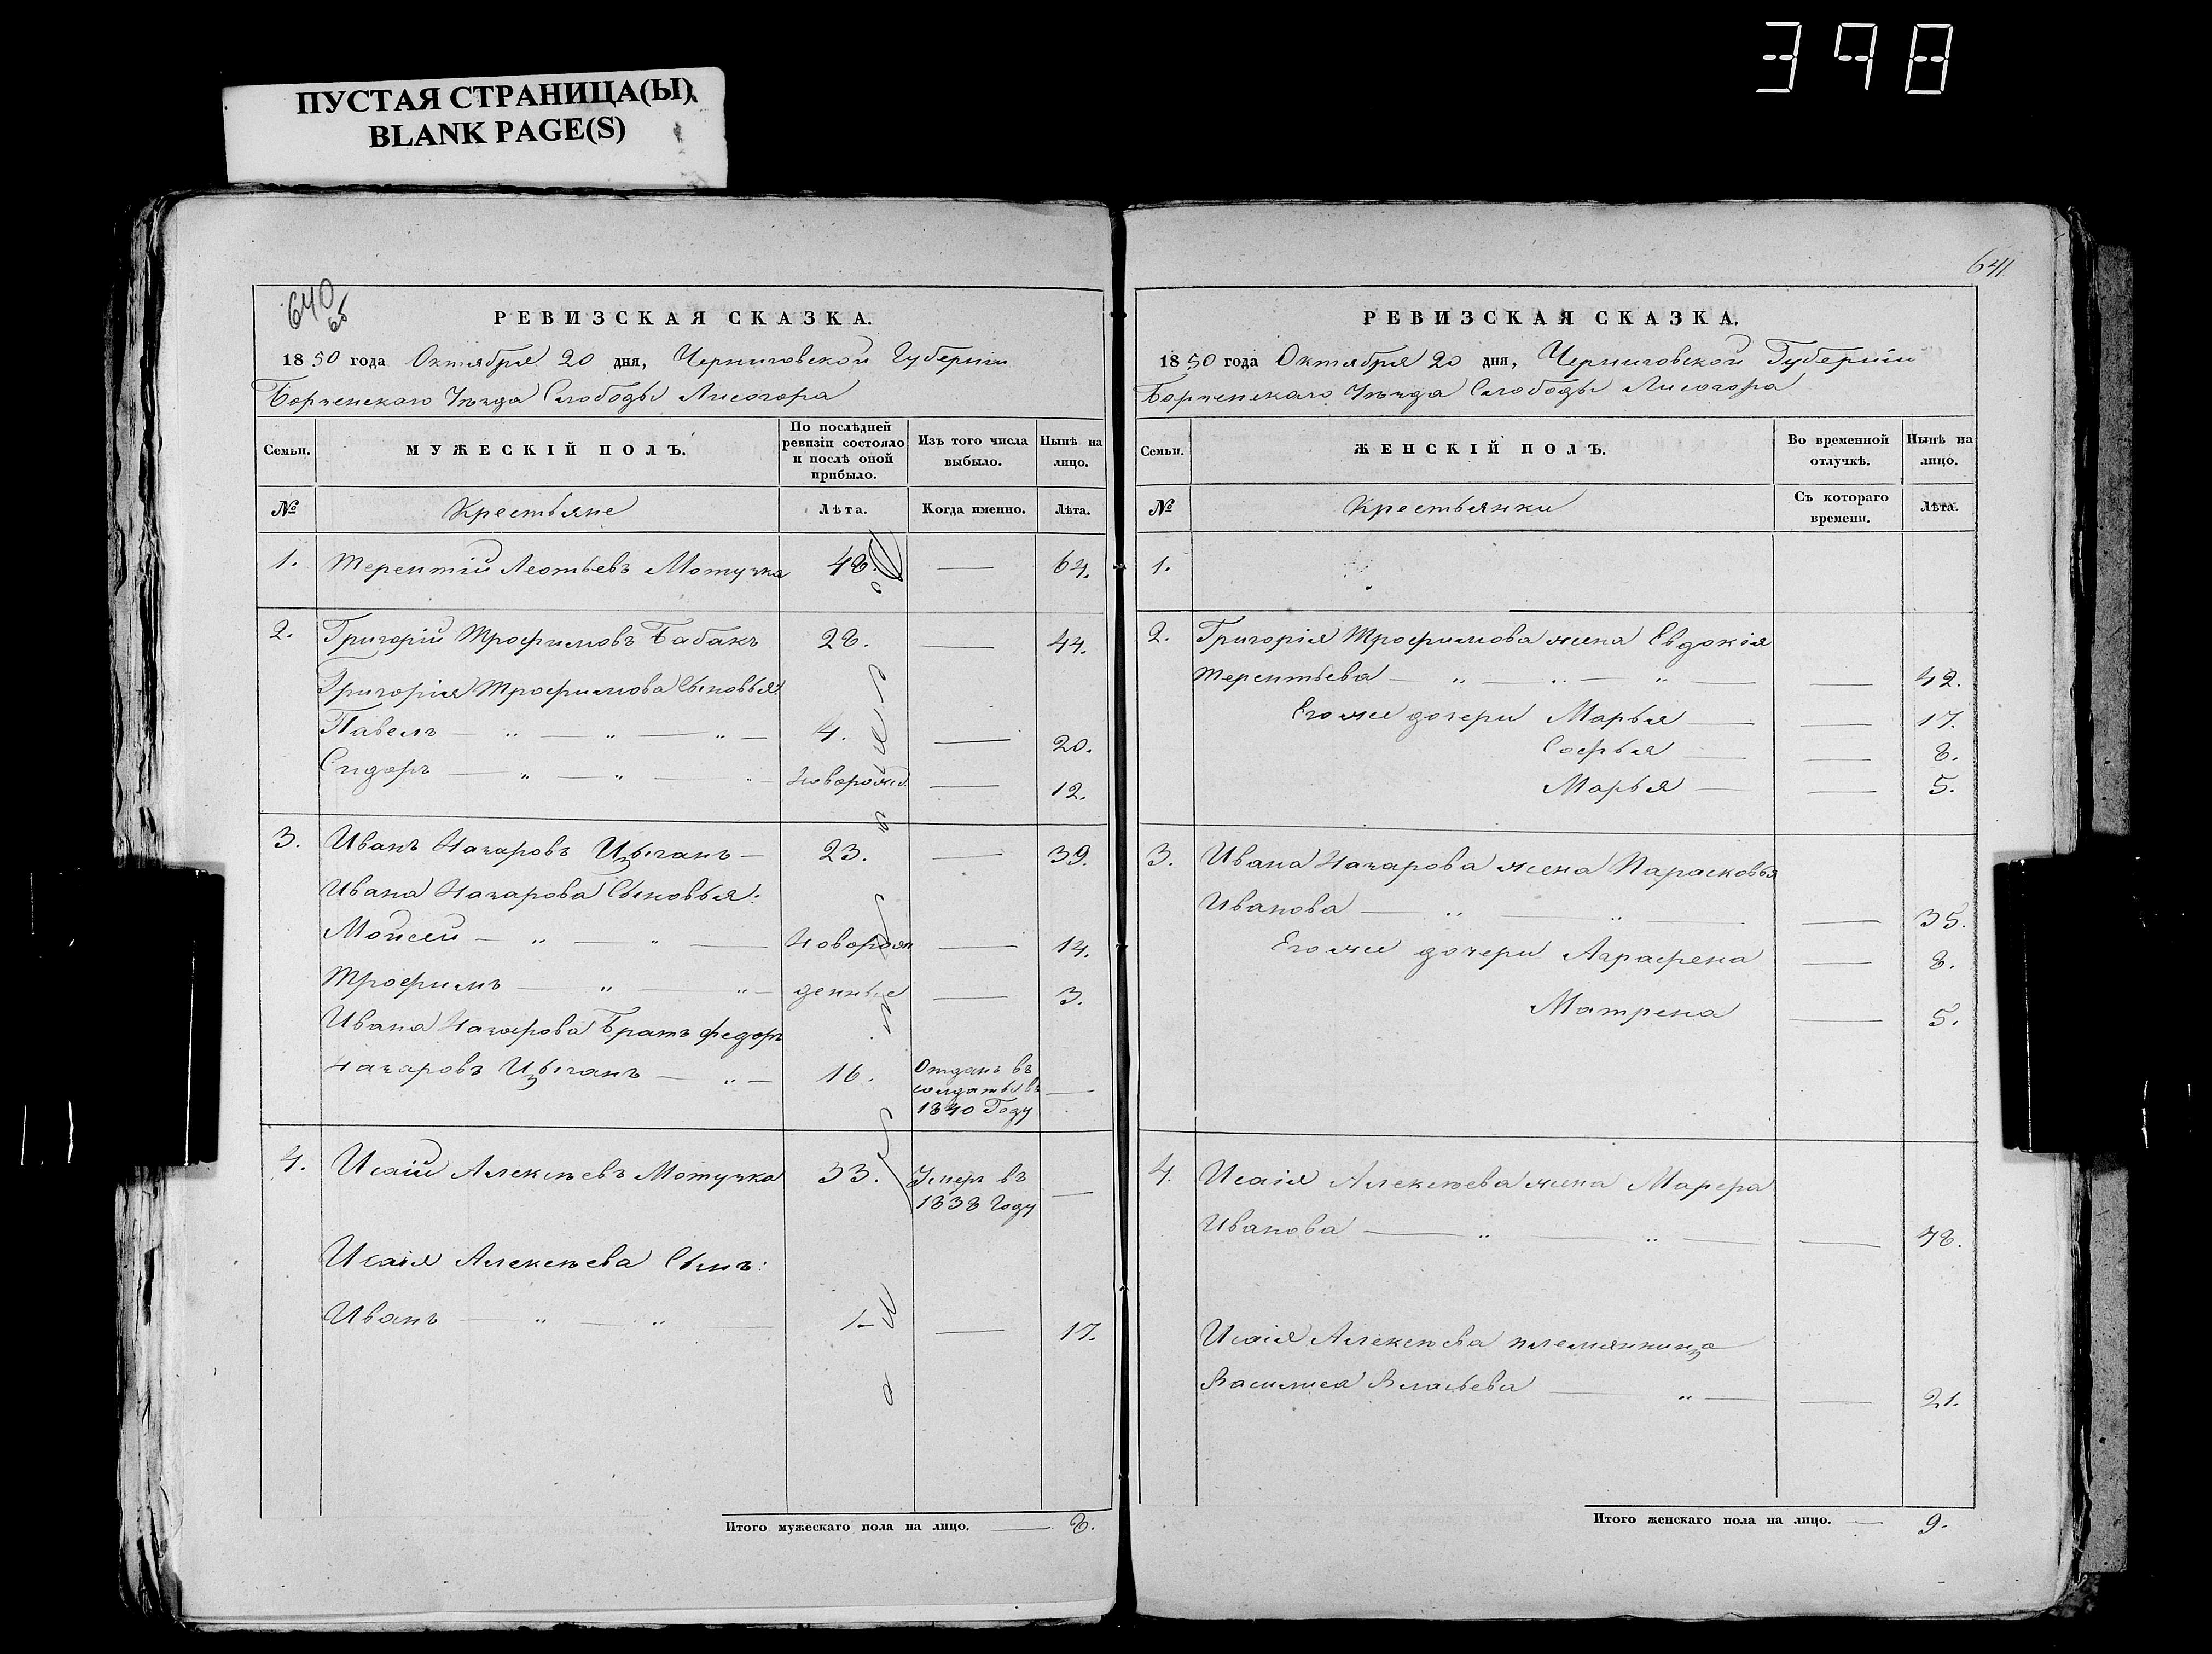 398
ПУСТАЯ СТРАНИЦА(Ы)
BLANK PAGE(S)
640
65
РЕВИЗСКАЯ СКАЗКА.
1850 года Октября 20 дня, Черниговской Губерніи
Борзенскаго Уѣзда Слободы Лисогора
Семьи.
МУЖЕСКІЙ ПОЛЪ.
По послѣдней ревизіи состояло и послѣ оной прибыло.
Изъ того числа выбыло.
Нынѣ на лицо.
№ Крестьяне Лѣта. Когда именно. Лѣта.
1. Терентій Леотьевъ Мотузка 48. — 64.
2. Григорій Трофимовъ Бабакъ 28. — 44.
Григорія Трофимова Сыновья:
Павелъ — „ — „ — „ — 4. — 20.
Сидоръ — „ — „ — „ — новорожд — 12.
3. Иванъ Назаровъ Цыганъ — 23. — 39.
Ивана Назарова Сыновья:
Мойсей — „ — „ — новорож — 14.
Трофимъ — „ — „ — денные — 3.
Ивана Назарова Братъ Федоръ
Назаровъ Цыганъ — „ — 16. Отданъ въ
солдаты въ —
1840 Году
4. Исаій Алексѣевъ Мотузка 33. Умеръ въ
1838 Году —
Исаія Алексѣева Сынъ:
Иванъ — „ — „ — 1 — 17.
Итого мужескаго пола на лицо. — 8.
641
РЕВИЗСКАЯ СКАЗКА.
1850 года Октября 20 дня, Черниговской Губерніи
Борзенскаго Уѣзда Слободы Лисогора
Семьи.
ЖЕНСКІЙ ПОЛЪ.
Во временной отлучкѣ.
Нынѣ на лицо.
№ Крестьянки Съ котораго времени. Лѣта.
1.
2. Григорія Трофимова жена Евдокія
Терентьева — „ — „ — „ — — 42.
Его же дочери Марья — — 17.
Софья — — 8.
Марья — — 5.
3. Ивана Назарова жена Парасковья
Иванова — „ — „ — — 35.
Его же дочери Аграфена — 8.
Матрена — 5.
4. Исаія Алексѣева жена
Иванова — „ — „ — — 48.
Исаія Алексѣева племянница
Василиса Власьева — „ — — 21.
Итого женскаго пола на лицо. — 9.